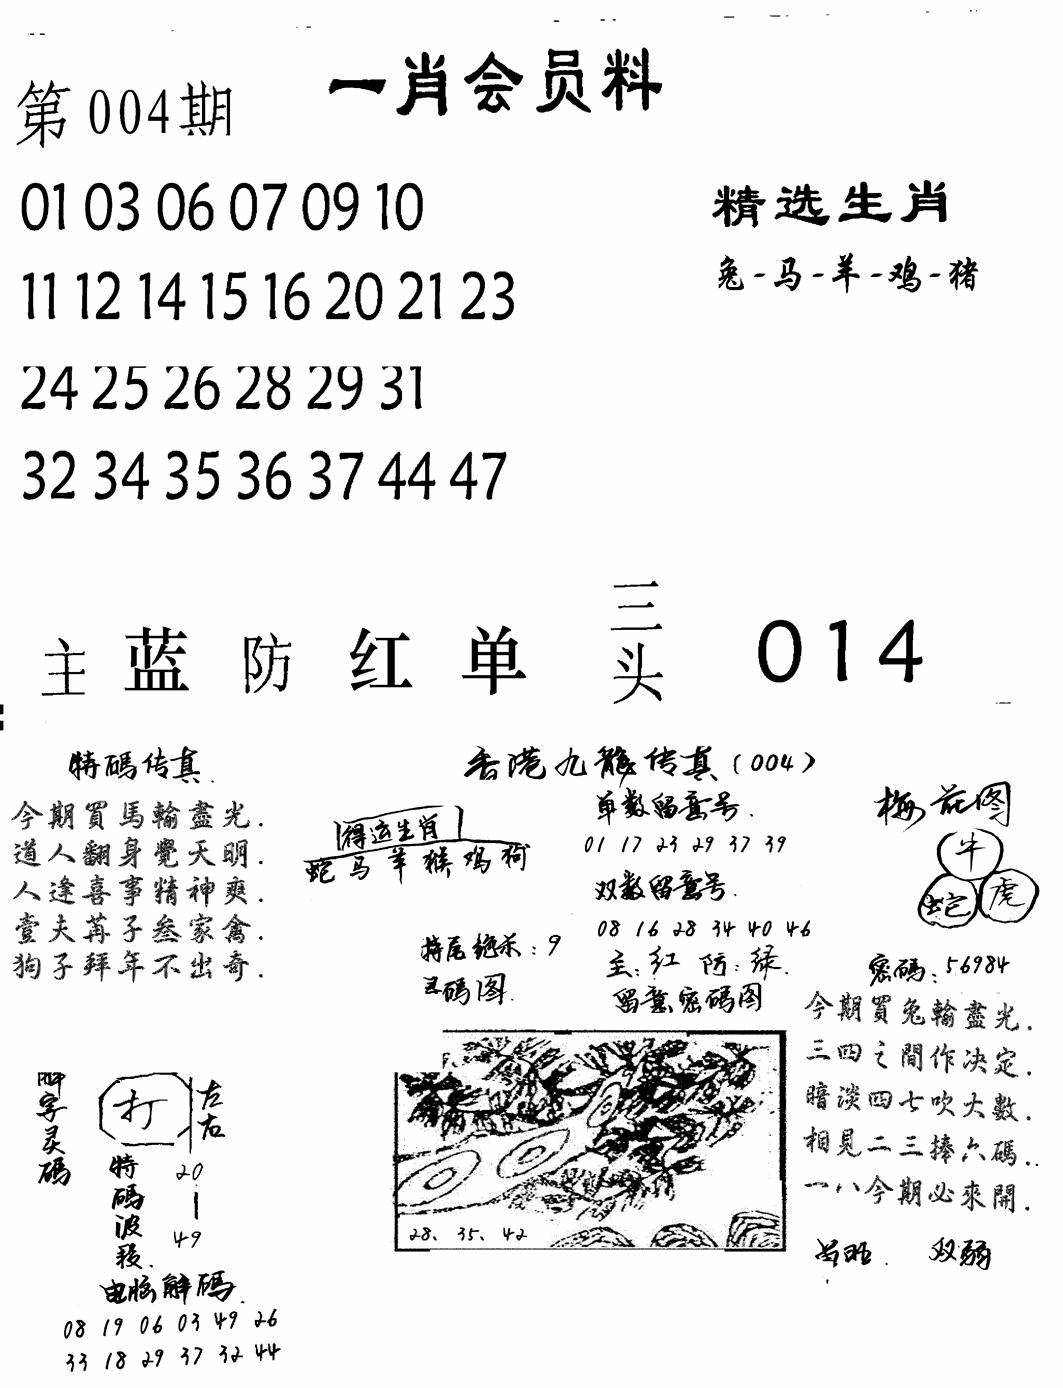 一肖会员料
第004期
01 03 06 07 09 10
11 12 14 15 16 20 21 23
24 25 26 28 29 31
32 34 35 36 37 44 47
精选生肖
兔-马-羊-鸡-猪
主 蓝 防 红 单 三头 014
特碼传真
今期買馬輸盡光.
道人翻身覺天明.
人逢喜事精神爽.
壹夫苒子叁家禽.
狗子拜年不出奇.
香港九龍传真(004)
得运生肖
蛇马羊猴鸡狗
特尾绝杀:9
码图
单数留意号.
01 17 23 29 37 39
双数留意号.
08 16 28 34 40 46
主:红 防:绿.
留意密码图
28、35、42
梅花图
牛
蛇 虎
密码:56984
今期買兔輸盡光.
三四之間作决定.
暗淡四七吹大数.
相見二三捧六碼..
一八今期必來開.
双弱
字灵碼
打
左右
特碼波段.
20-49
电脑解碼.
08 19 06 03 49 26
33 18 29 37 32 44